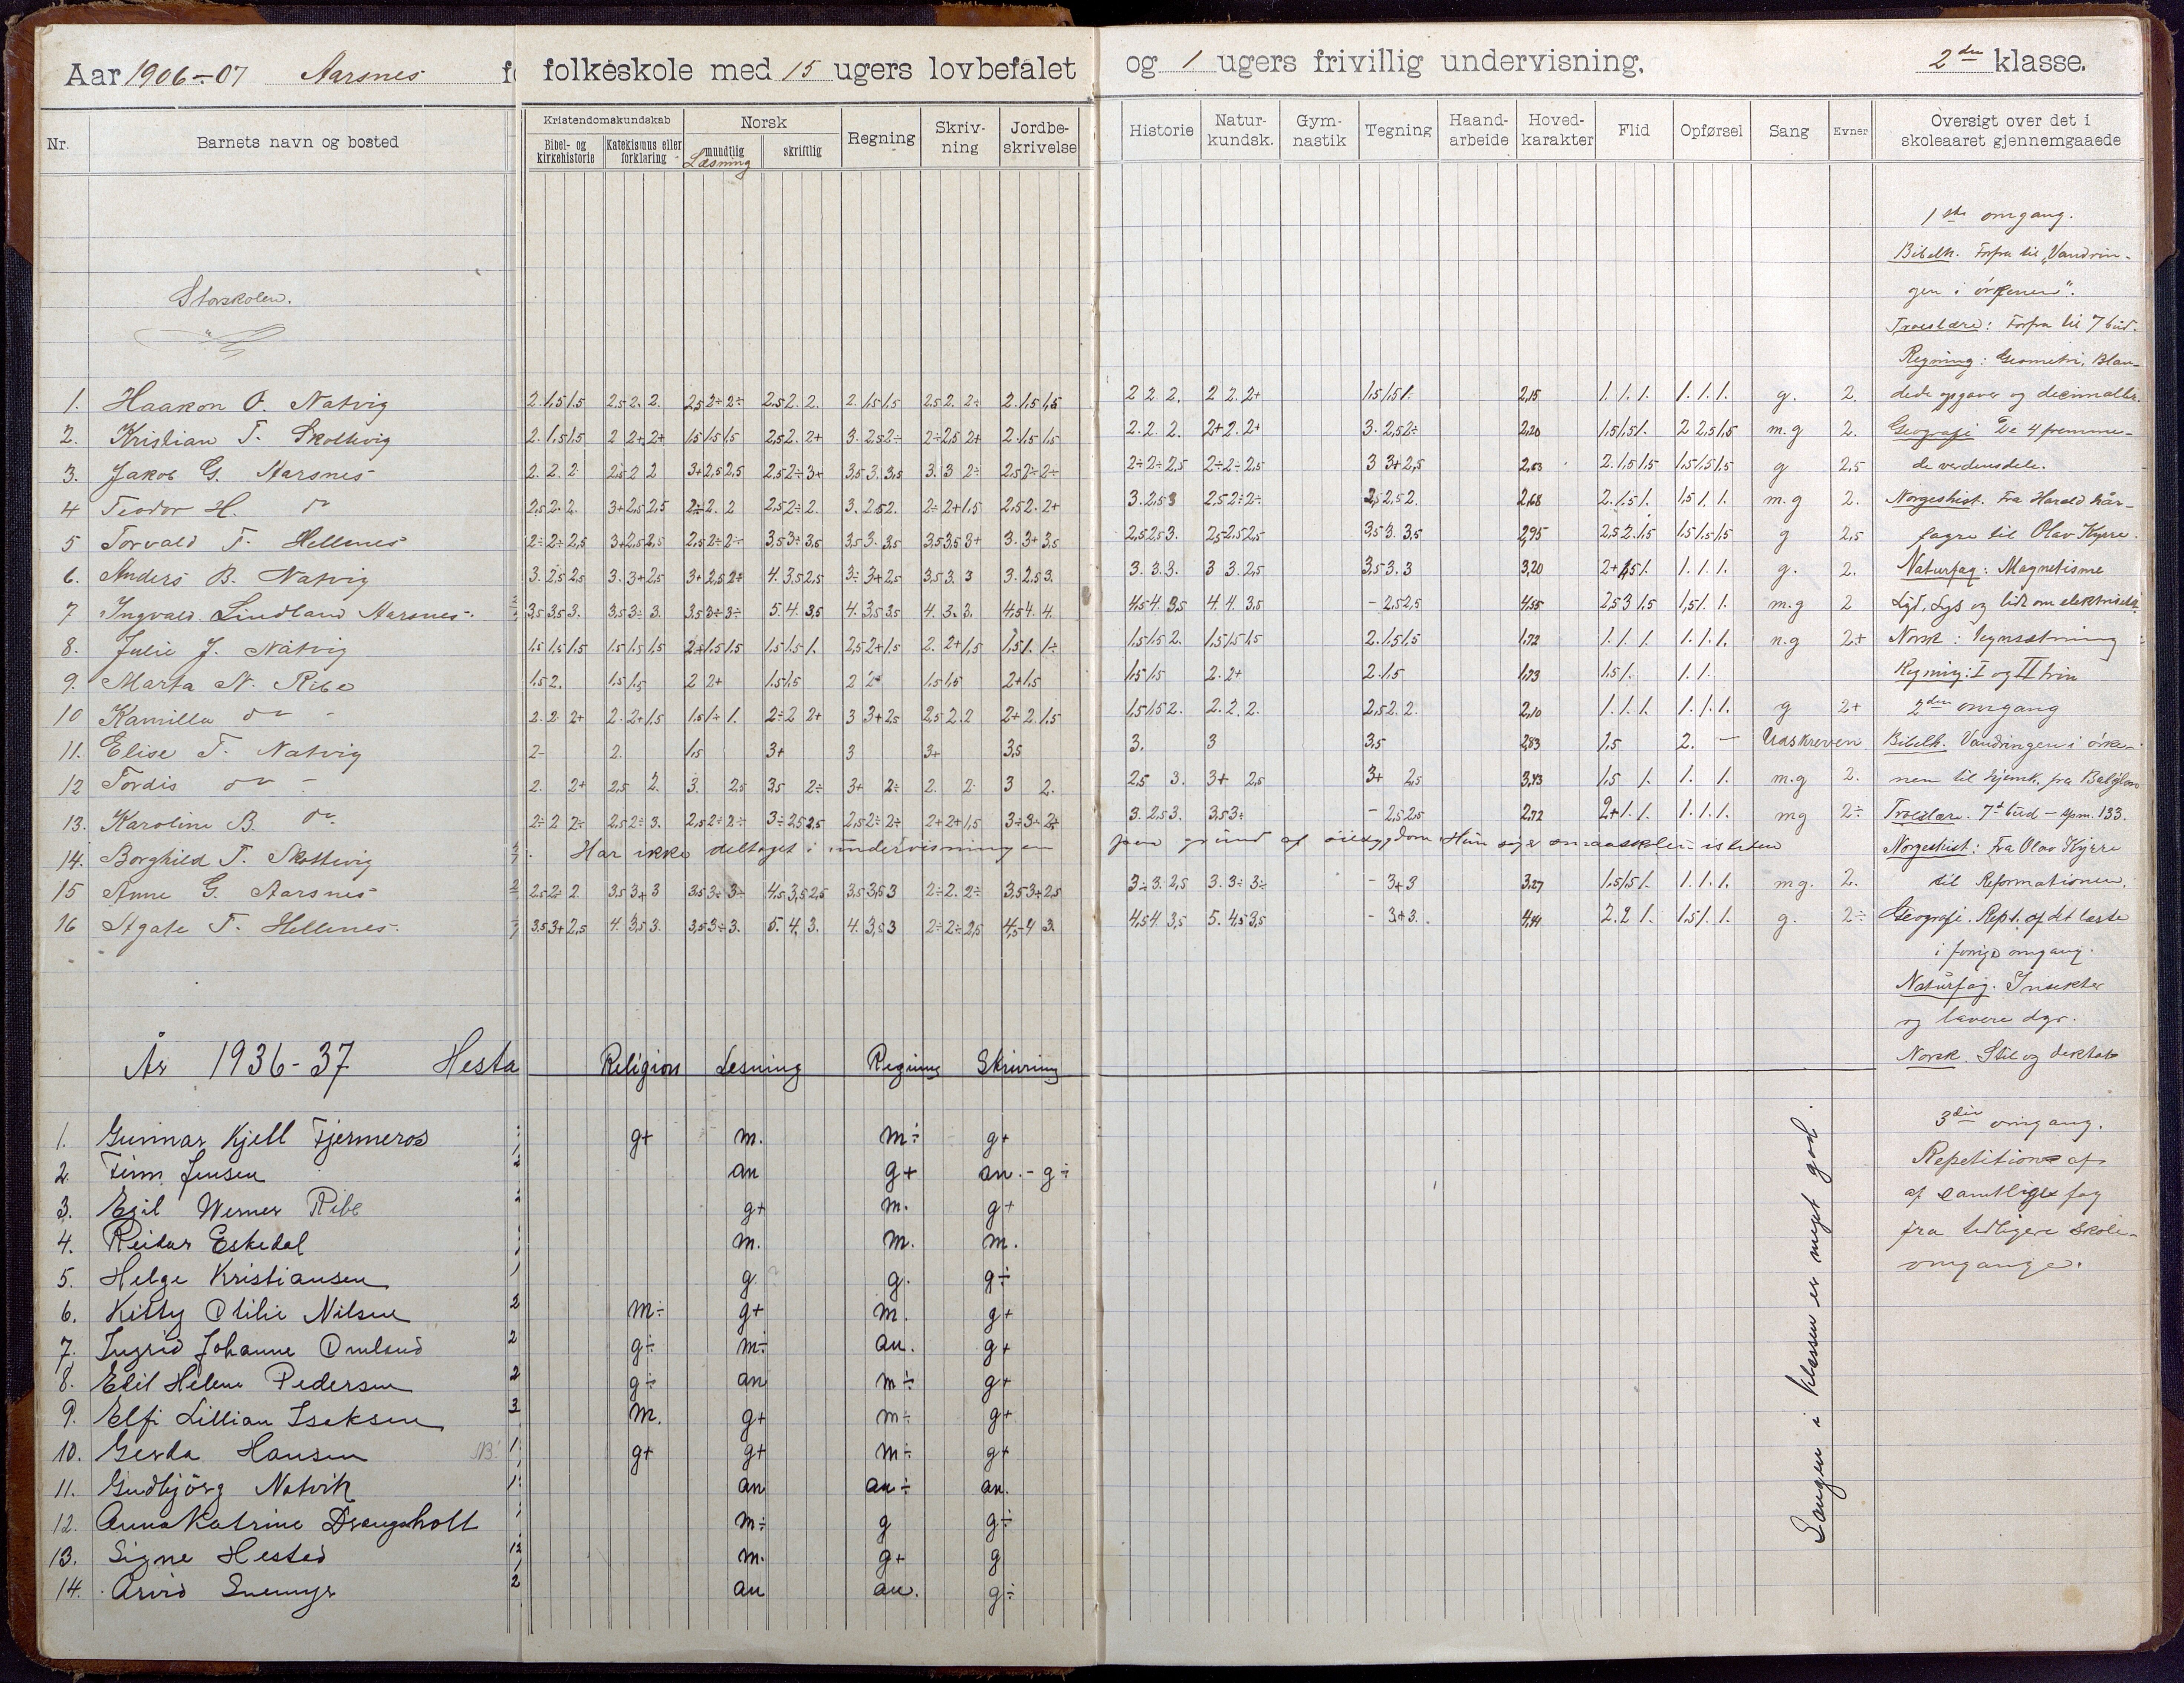 Aar 1906-07 Aarsnes folkeskole med 15 ugers lovbefalet og 1 ugers frivillig undervisning. 2den klasse.
Nr. Barnets navn og bosted
Kristendomskundskab Norsk Regning Skriv-ning Jordbe-skrivelse Historie Natur-kundsk. Gym-nastik Tegning Haand-arbeide Hoved-karakter Flid Opførsel Sang Evner Oversigt over det i skoleaaret gjennemgaaede
Bibel- og kirkehistorie Katekismus eller forklaring mundtlig Læsning skriftlig
Storskolen.
1. Haakon O. Natvig 2. 1,5 1,5 2,5 2. 2. 2,5 2+ 2÷ 2,5 2. 2. 2. 1,5 1,5 2,5 2. 2÷ 2. 1,5 1,5 2 2 2. 2 2. 2+ 1,5 1,5 1. 2,15 1. 1. 1. 1. 1. 1. g. 2.
2. Kristian T. Skottevig 2. 1,5 1,5 2 2+ 2+ 1,5 1,5 1,5 2,5 2. 2+ 3. 2,5 2÷ 2÷ 2,5 2+ 2. 1,5 1,5 2. 2. 2. 2+ 2. 2+ 3. 2,5 2÷ 2,20 1,5 1,5 1. 2 2,5 1,5 m.g 2.
3. Jakob G. Aarsnes 2. 2. 2 2,5 2 2 3+ 2,5 2,5 2,5 2÷ 3+ 3,5 3. 3,5 3. 3 2÷ 2,5 2÷ 2÷ 2÷ 2÷ 2,5 2÷ 2÷ 2,5 3 3+ 2,5 2,63 2. 1,5 1,5 1,5 1,5 1,5 g 2,5
4 Teodor H. do 2,5 2. 2. 3+ 2,5 2,5 2÷ 2. 2 2,5 2÷ 2. 3. 2,5 2. 2÷ 2+ 1,5 2,5 2. 2+ 3. 2,5 3 2,5 2÷ 2÷ 2,5 2,5 2. 2,68 2. 1,5 1. 1,5 1. 1. m.g 2.
5 Torvald T. Hellenes 2÷ 2÷ 2,5 3+ 2,5 2,5 2,5 2÷ 2÷ 3,5 3÷ 3,5 3,5 3. 3,5 3,5 3,5 3+ 3. 3+ 3,5 2,5 2,5 3. 2,5 2,5 2,5 3,5 3. 3,5 2,95 2,5 2. 1,5 1,5 1,5 1,5 g 2,5
6. Anders B. Natvig 3. 2,5 2,5 3. 3+ 2,5 3+ 2,5 2÷ 4. 3,5 2,5 3÷ 3+ 2,5 3,5 3. 3 3. 2,5 3. 3. 3. 3. 3 3. 2,5 3,5 3. 3 3,20 2+ 1,5 1. 1. 1. 1. g. 2.
7 Ingvald Lindland Aarsnes 3,5 3,5 3. 3,5 3÷ 3. 3,5 3÷ 3÷ 5. 4. 3,5 4. 3,5 3,5 4. 3. 3. 4,5 4. 4. 4,5 4. 3,5 4. 4. 3,5 - 2,5 2,5 4,55 2,5 3 1,5 1,5 1. 1. m.g 2
8. Julie J. Natvig 1,5 1,5 1,5 1,5 1,5 1,5 2+ 1,5 1,5 1,5 1,5 1. 2,5 2+ 1,5 2. 2+ 1,5 1,5 1. 1÷ 1,5 1,5 2. 1,5 1,5 1,5 2. 1,5 1,5 1,72 1. 1. 1. 1. 1. 1. n.g 2+
9. Marta N. Ribe 1,5 2. 1,5 1,5 2 2+ 1,5 1,5 2 2+ 1,5 1,5 2+ 1,5 1,5 1,5 2. 2+ 2. 1,5 1,73 1,5 1. 1. 1.
10 Kamilla do 2. 2. 2+ 2. 2+ 1,5 1,5 1÷ 1. 2÷ 2 2+ 3 3+ 2,5 2,5 2. 2 2+ 2. 1,5 1,5 1,5 2. 2. 2. 2. 2,5 2. 2. 2,10 1. 1. 1. 1. 1. 1. g 2+
11. Elise T. Natvig 2- 2. 1,5 3+ 3 3+ 3,5 3. 3 3,5 2,83 1,5 2. - Udskreven
12 Tordis do 2. 2+ 2,5 2. 3. 2,5 3,5 2÷ 3+ 2÷ 2. 2. 3 2. 2,5 3. 3+ 2,5 3+ 2,5 3,43 1,5 1. 1. 1. m.g 2.
13. Karoline B. do 2÷ 2 2÷ 2,5 2÷ 3. 2,5 2÷ 2÷ 3÷ 2,5 2,5 2,5 2÷ 2÷ 2+ 2+ 1,5 3÷ 3÷ 2,5 3. 2,5 3. 3,5 3÷ - 2,5 2,5 2,72 2+ 1. 1. 1. 1. 1. mg 2÷
14. Borghild T. Skottevig Har ikke deltaget i undervisningen paa grund af øiesygdom
15 Anne G. Aarsnes 2,5 2÷ 2. 3,5 3+ 3 3,5 3÷ 3÷ 4,5 3,5 2,5 3,5 3,5 3 2÷ 2. 2÷ 3,5 3+ 2,5 3÷ 3. 2,5 3. 3÷ 3÷ - 3+ 3 3,27 1,5 1,5 1. 1. 1. 1. mg. 2.
16 Agate T. Hellenes 3,5 3+ 2,5 4. 3,5 3. 3,5 3÷ 3. 5. 4. 3. 4. 3,5 3 2÷ 2÷ 2,5 4,5 4 3. 4,5 4. 3,5 5. 4,5 3,5 - 3+ 3. 4,14 2. 2 1. 1,5 1. 1. g. 2÷
1ste omgang.
Bibelh. Forfra til "Vandrin-
gen i ørkenen".
Troeslære: Forfra til 7 bud.
Regning: Geometri, Blan-
dede opgaver og decimalbr.
Geografi De 4 fremme-
de verdensdele.
Norgeshist. Fra Harald hår-
fagre til Olav Kyrre.
Naturfag: Magnetisme
Lyd, Lys og lidt om elektricitet
Norsk: Tegnsætning
Regning: I og II trin
2den omgang
Bibelh. Vandringen i ørke-
nen til hjemk. fra Babylon
Troeslære. 7de bud - spm. 133.
Norgeshist: Fra Olav Kyrre
til Reformationen.
Geografi. Rept. af det læste
i forrige omgang.
Naturfag. Insekter
og lavere dyr.
Norsk. Stil og diktat
3die omgang.
Repetition af
af samtlige fag
fra tidligere skole-
omgange.
Sangen i klassen er meget god.
År 1936-37 Hesta Religion Lesning Regning Skrivning
1. Gunnar Kjell Fjermeros g+ m. m÷ g+
2. Finn Jensen an g+ an.-g÷
3. Egil Werner Ribe g+ m. g+
4. Reidar Eskedal m. m. m.
5. Helge Kristiansen g. g. g÷
6. Kitty Otilie Nilsen 2 m÷ g+ m. g+
7. Ingrid Johanne Omland 2 g÷ m÷ an. g+
8. Edil Helene Pedersen 2 g÷ an m÷ g+
9. Elfi Lillian Isaksen 3 m. g+ m÷ g+
10. Gerda Hansen NB! 1 g+ g+ m÷ g+
11. Gudbjörg Natvik 1 an an÷ an.
12. Anna Katrine Drangsholt m÷ g g÷
13. Signe Hested m. g+ g
14. Arvid Snemyr 2 an an. g÷